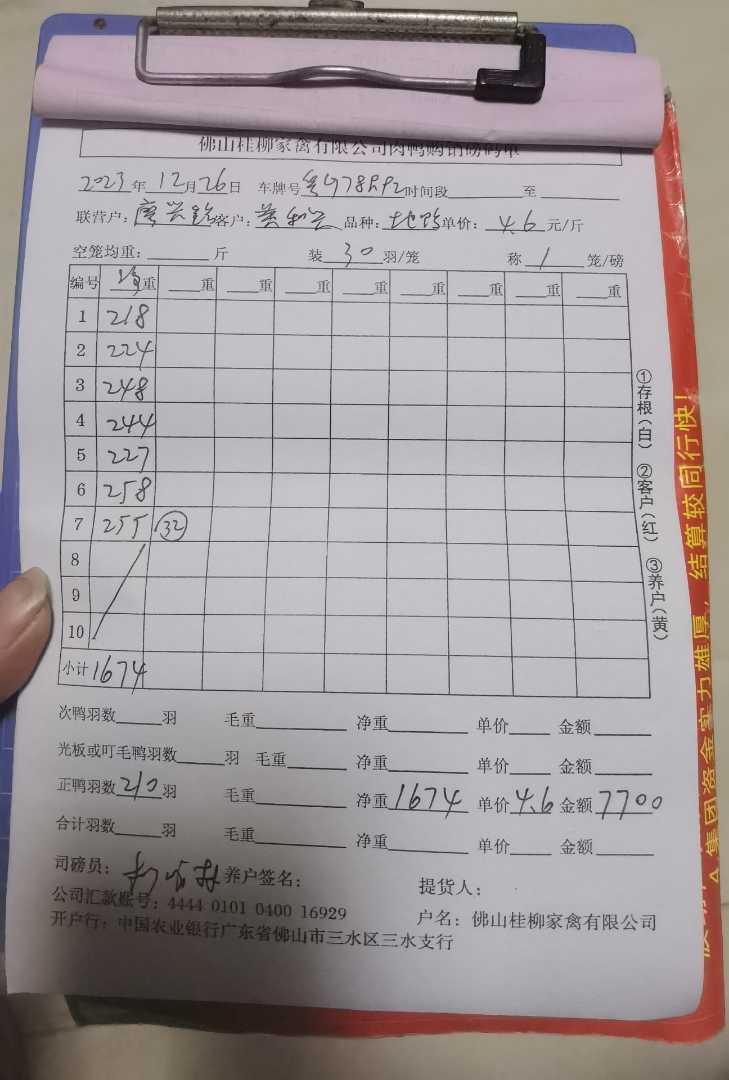 佛山桂柳家禽有限公司肉鸭购销磅码单
2023年12月26日 车牌号 时间段 至
联营户： 客户： 品种： 单价：4.6元/斤
空笼均重： 斤 装30羽/笼 称1笼/磅
编号 净重 重 重 重 重 重 重 重 重
1 218
2 224
3 248
4 244
5 227
6 258
7 255 32
8
9
10
小计 1674
次鸭羽数 羽 毛重 净重 单价 金额
光板或叮毛鸭羽数 羽 毛重 净重 单价 金额
正鸭羽数210羽 毛重 净重1674 单价4.6 金额7700
合计羽数 羽 毛重 净重 单价 金额
司磅员： 养户签名： 提货人：
公司汇款账号：4444 0101 0400 16929 户名：佛山桂柳家禽有限公司
开户行：中国农业银行广东省佛山市三水区三水支行
①存根（白） ②客户（红） ③养户（黄）
集团资金实力雄厚，结算较同行快！